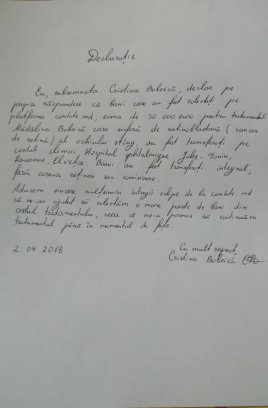 Declarație
Eu, subsemnata Cristina Bobeică, declar pe
propria răspundere că banii care au fost colectați pe
platforma caritate.md, suma de 30 000 euro pentru tratamentul
Mădălinei Bobeică care suferă de retinoblastomă ( cancer
de retină) al ochiului stîng, au fost transferați pe
contul clinicii Hospital Ophtalmique Jules-Gonin,
Lausanne, Elveția. Banii au fost transferați integral,
fără careva rețineri sau comisioane.
Aducem sincere mulțumiri întregii echipe de la caritate.md
că ne-au ajutat să colectăm o mare parte de bani din
costul tratamentului, ceea ce ne-a permis să continuăm
tratamentul până în momentul de față.
2.04.2018
Cu mult respect,
Cristina Bobeică